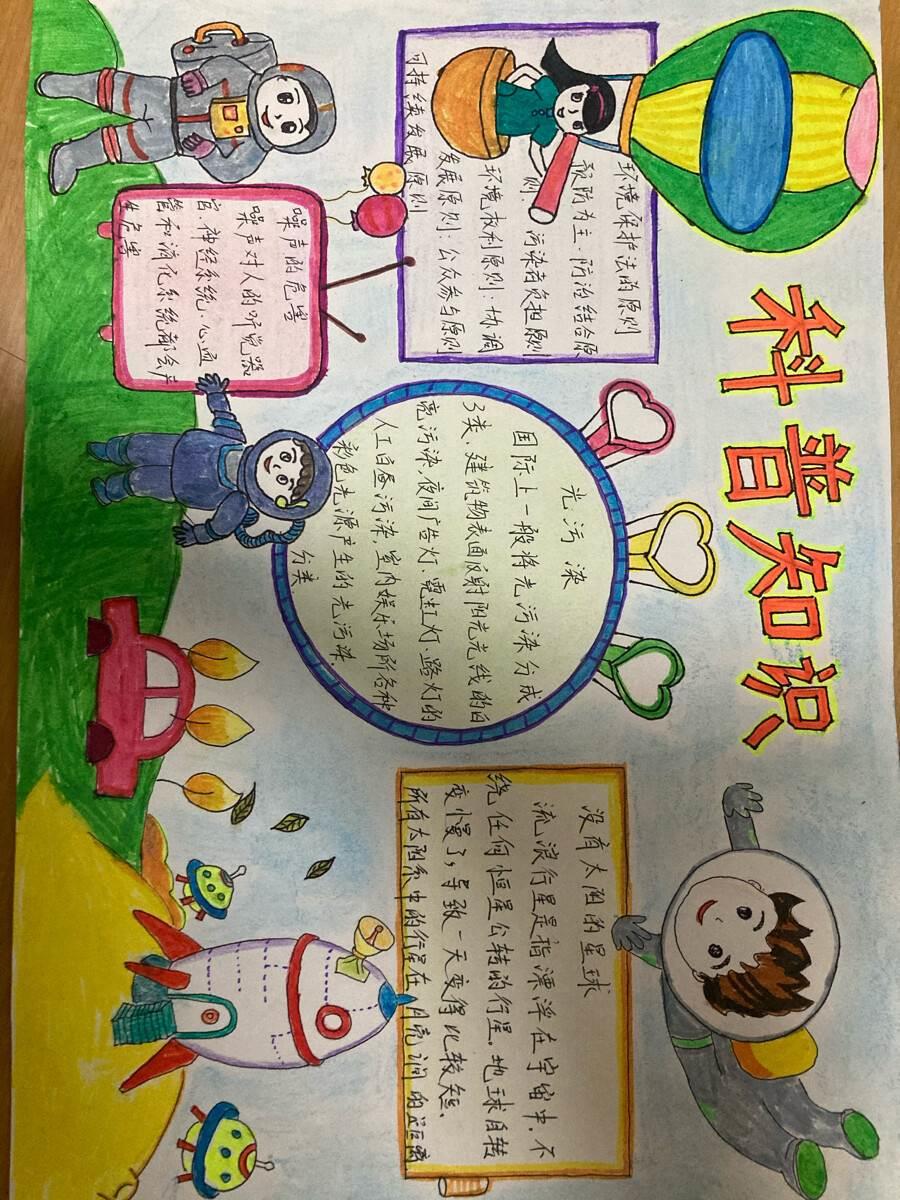 科普知识
环境保护法的原则
预防为主、防治结合原
则 污染者负担原则
环境权利原则:协调
发展原则:公众参与原则
可持续发展原则
噪声的危害
噪声对人的听觉器
官、神经系统、心血
管和消化系统都会产
生危害
光污染
国际上一般将光污染分成
3类、建筑物表面反射阳光光线的白
亮污染、夜间广告灯、霓虹灯、路灯的
人工白昼污染,室内娱乐场所各种
彩色光源产生的光污染.
分类
没有太阳的星球
流浪行星是指漂浮在宇宙中,不
绕任何恒星公转的行星。地球自转
变慢了,导致一天变得比较短.
所有太阳系中的行星在月亮间的距离